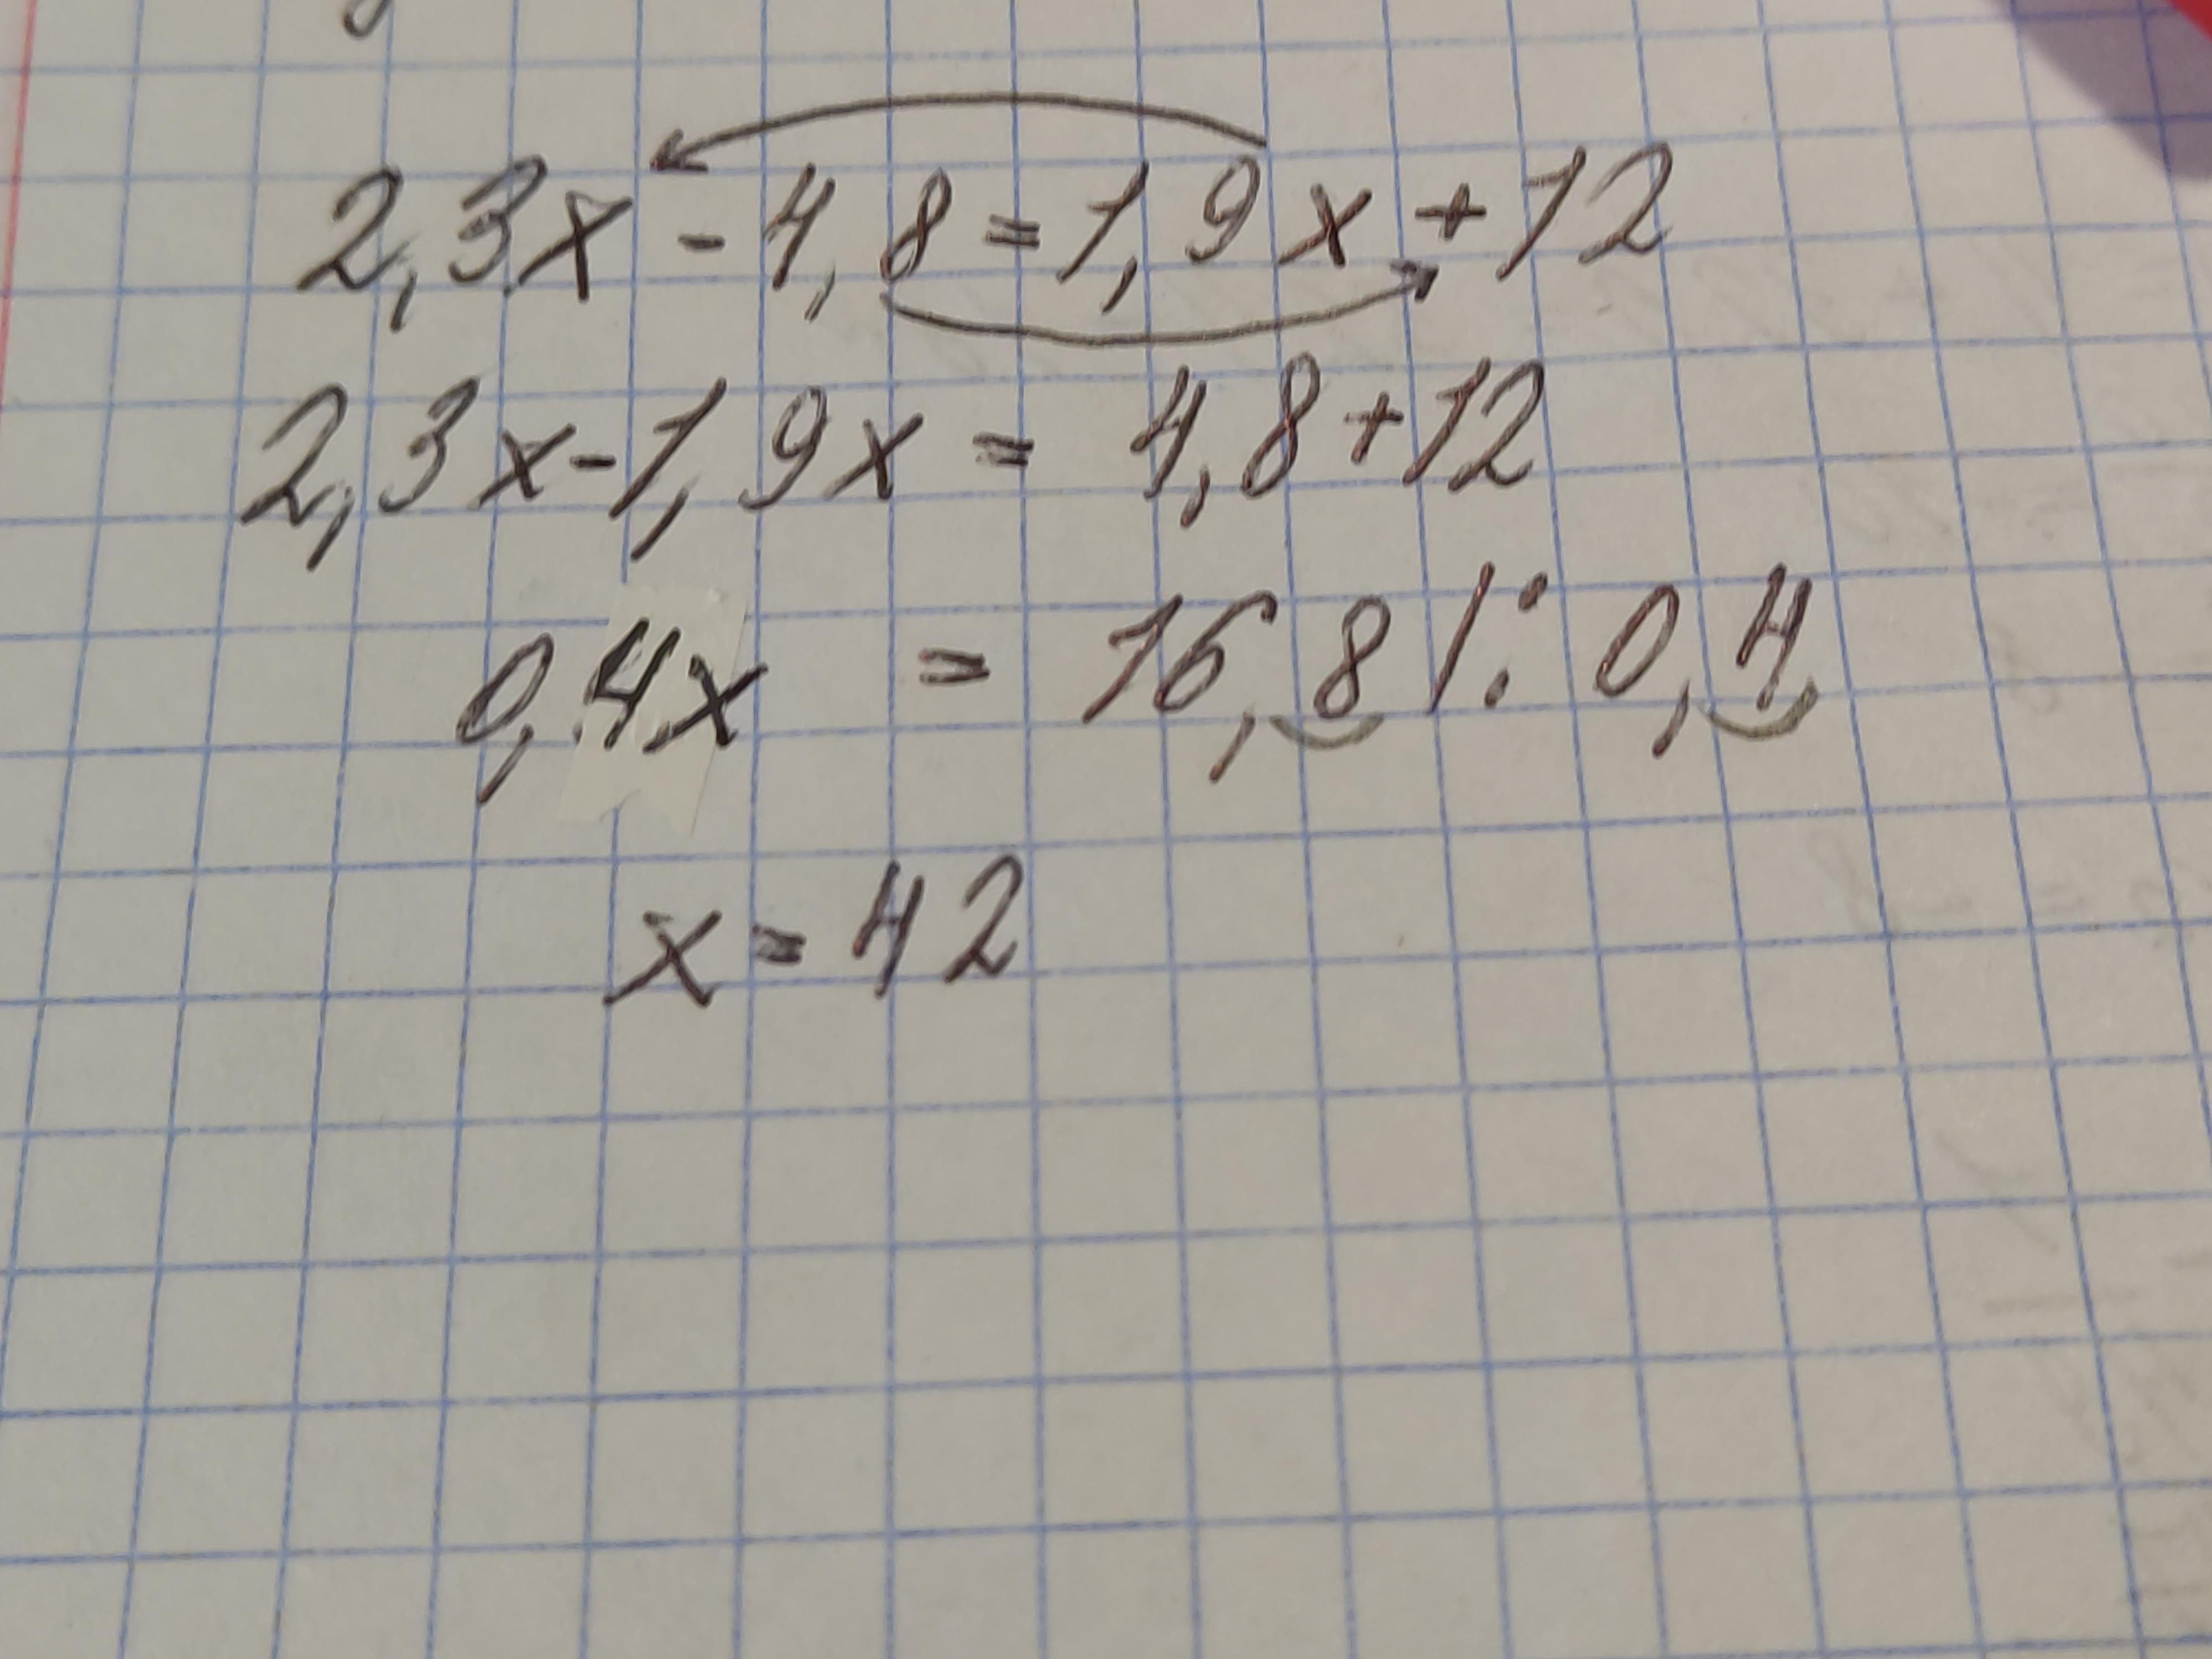 2,3x - 4,8 = 1,9x + 12
2,3x - 1,9x = 4,8 + 12
0,4x = 16,8 | : 0,4
x = 42